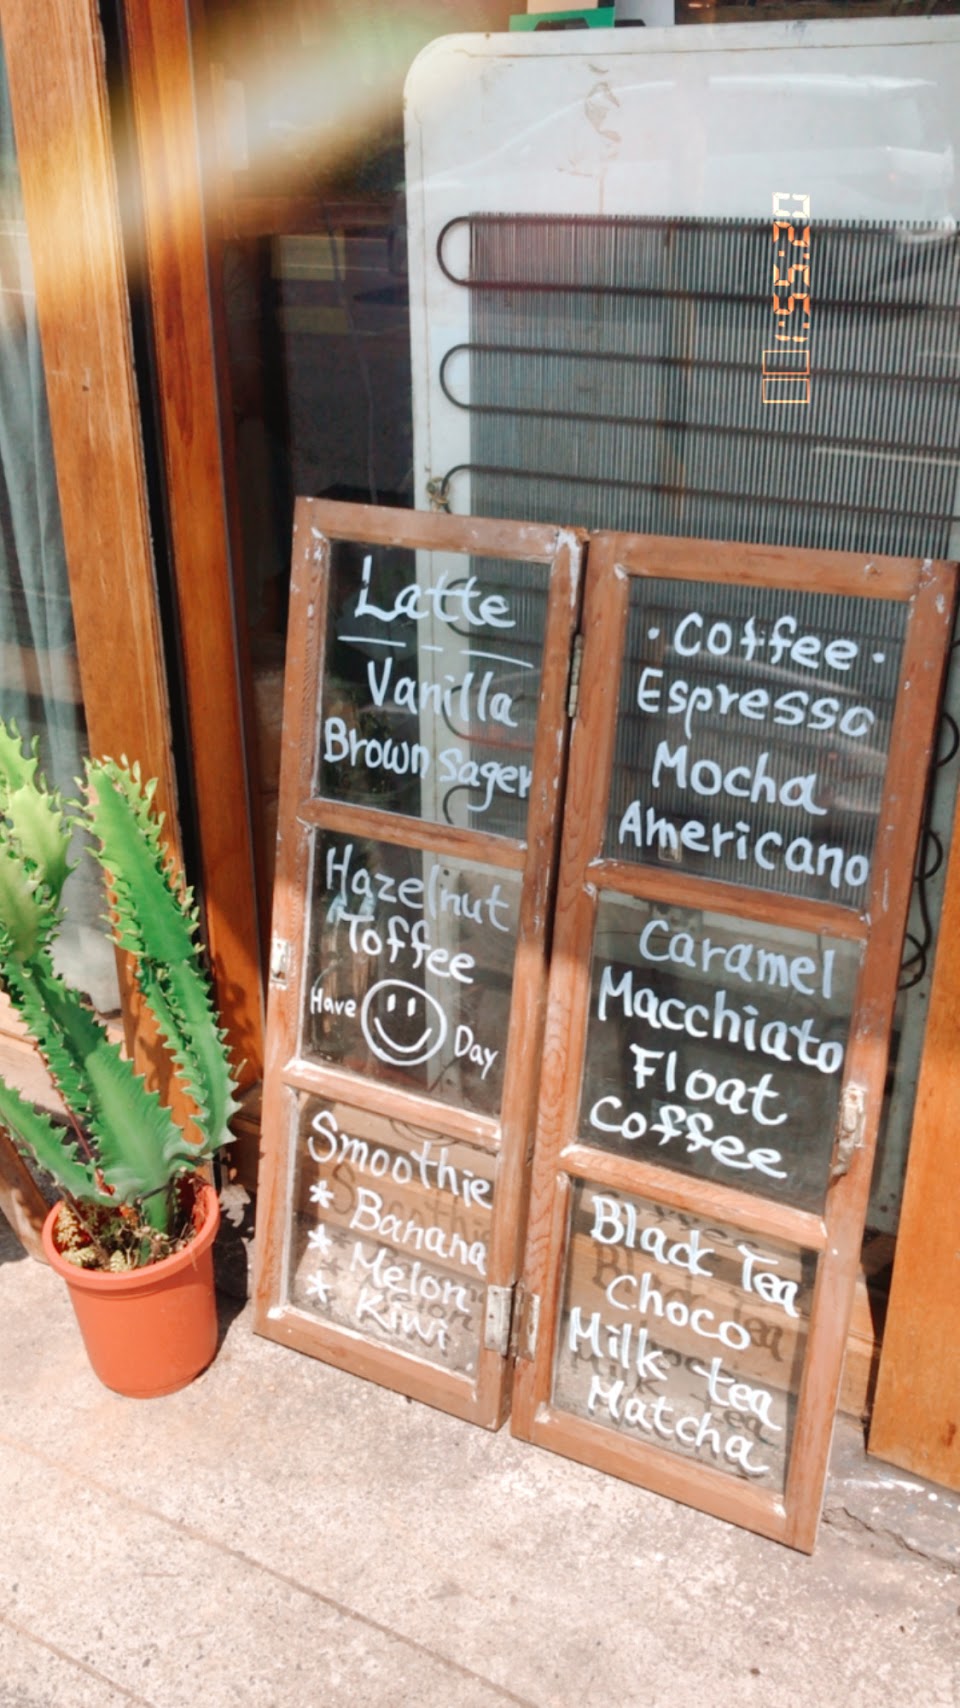 Latte
Vanilla
Brown sager
Hazelnut
Toffee
Have Day
Smoothie
* Banana
* Melon
* Kiwi
·Coffee·
Espresso
Mocha
Americano
Caramel
Macchiato
Float
Coffee
Black Tea
Choco
Milk tea
Matcha